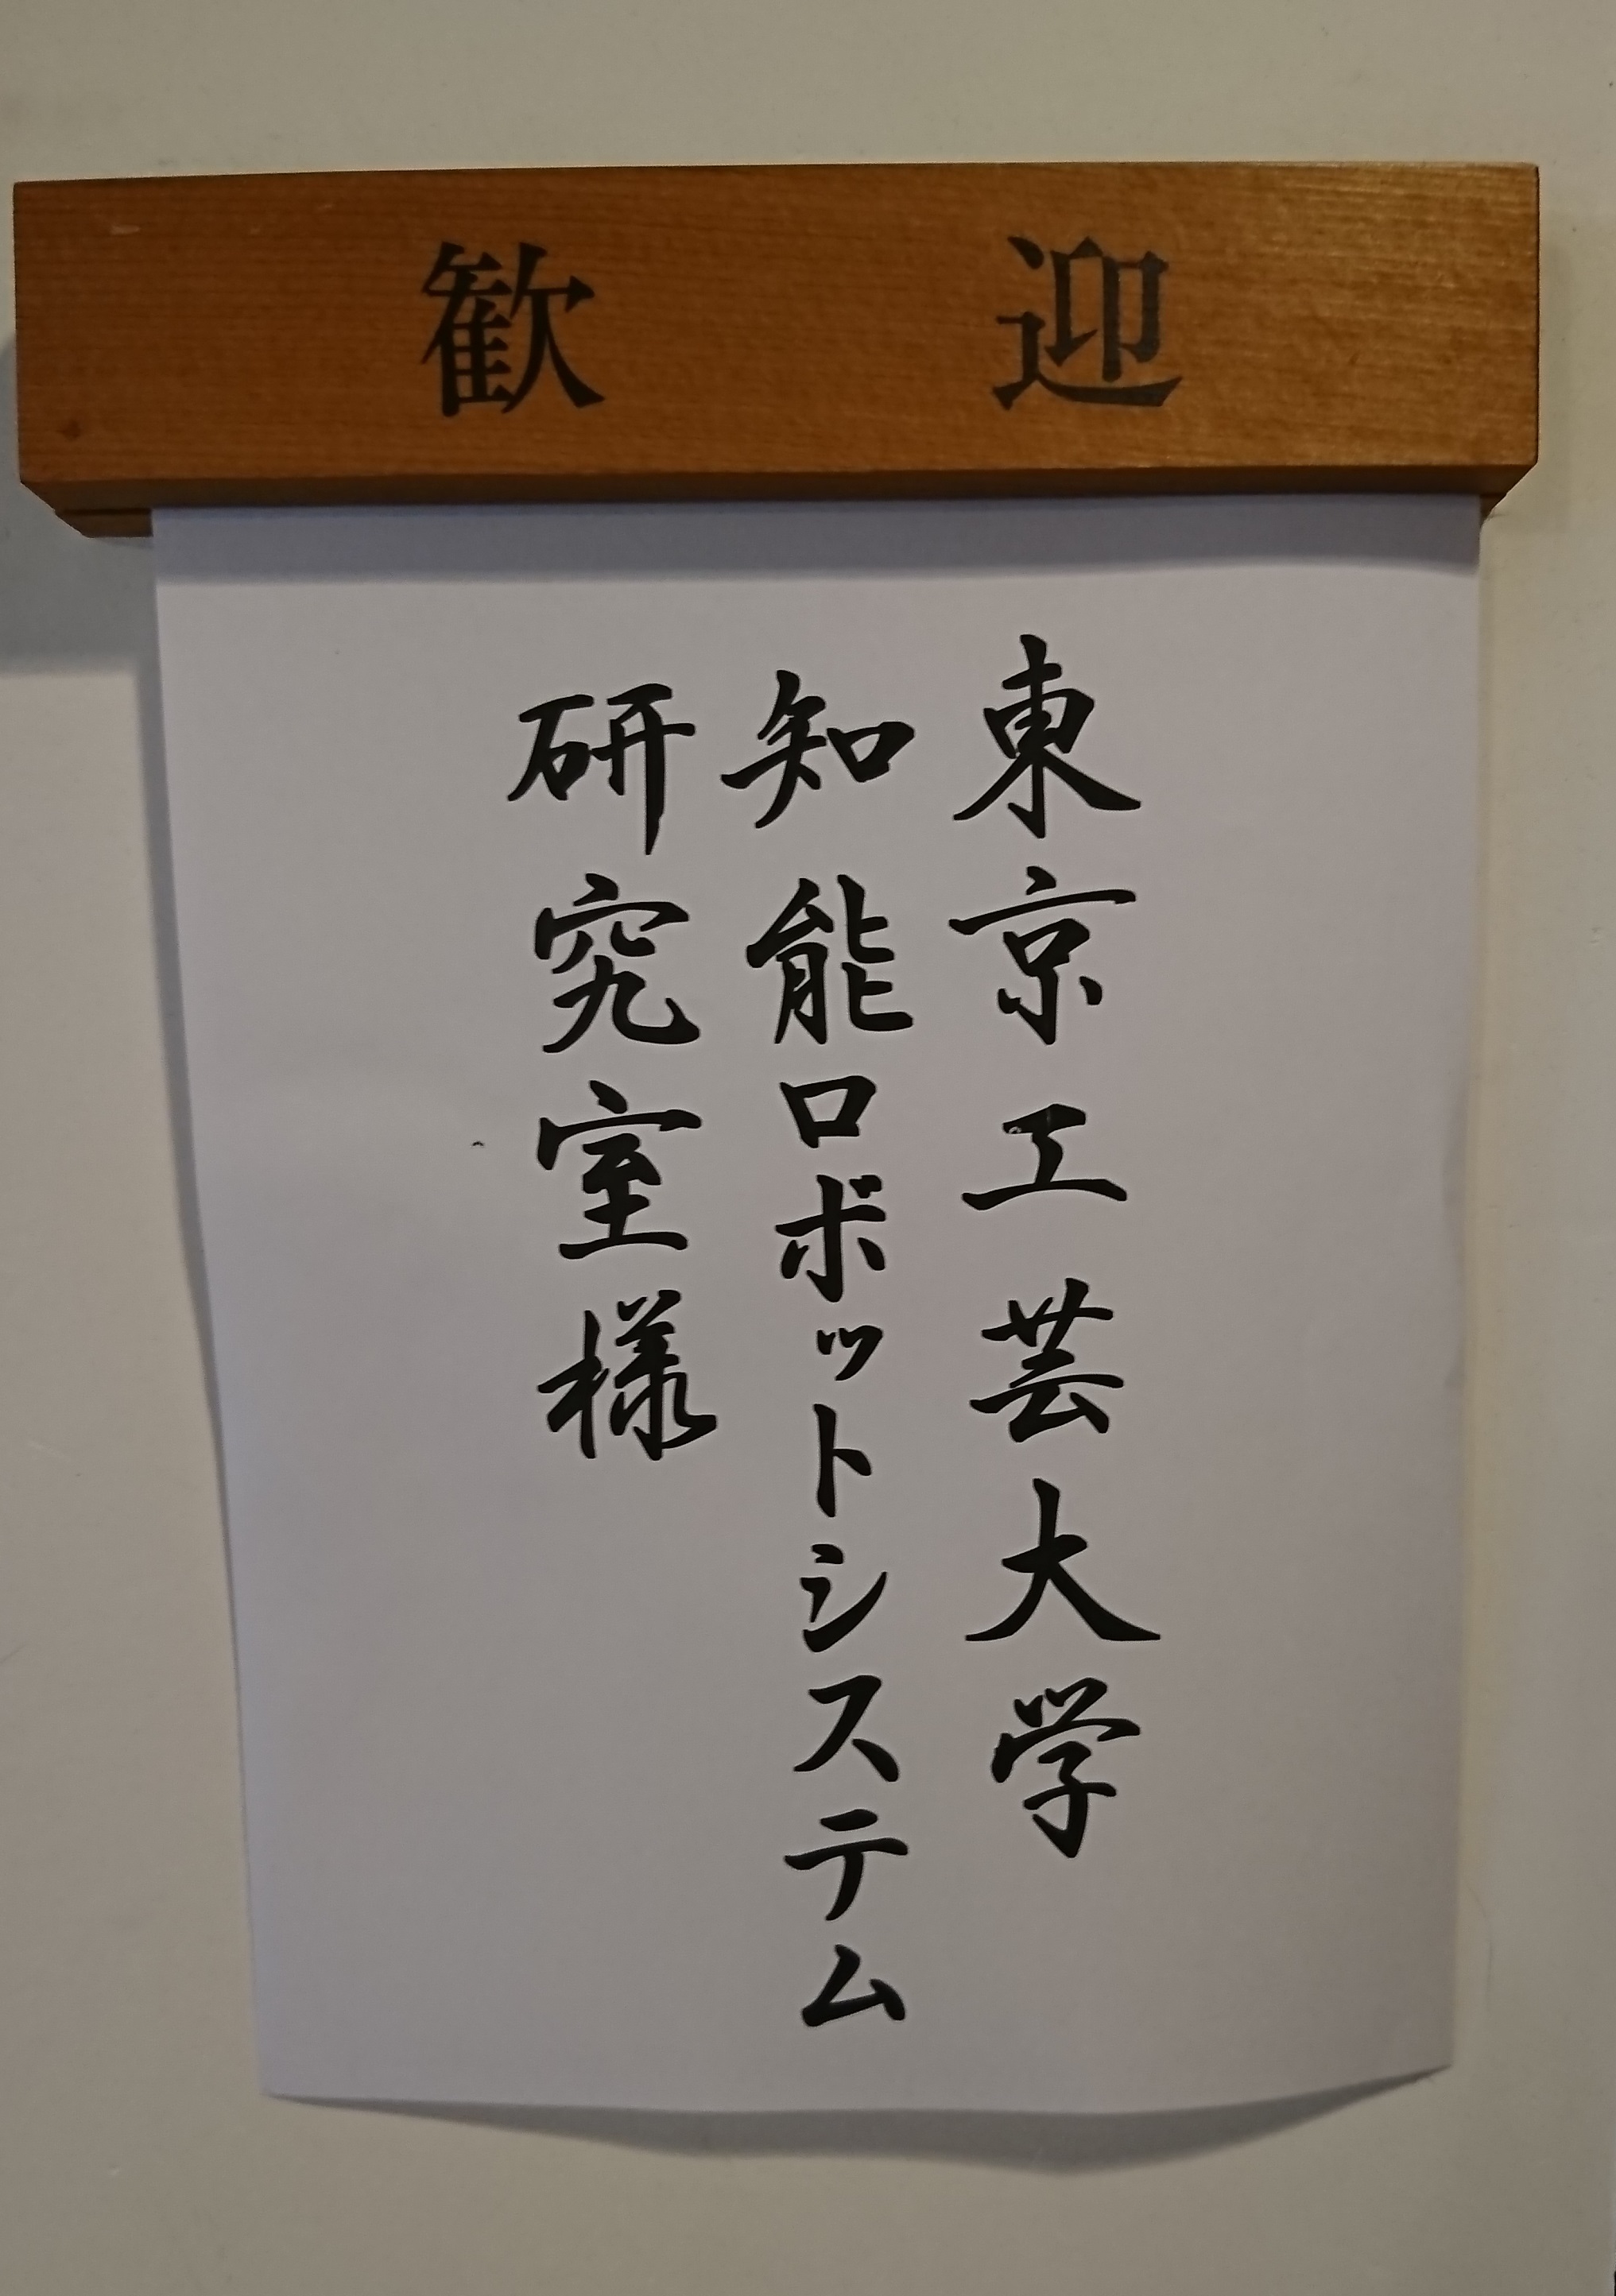 歓迎
東京工芸大学
知能ロボットシステム
研究室様